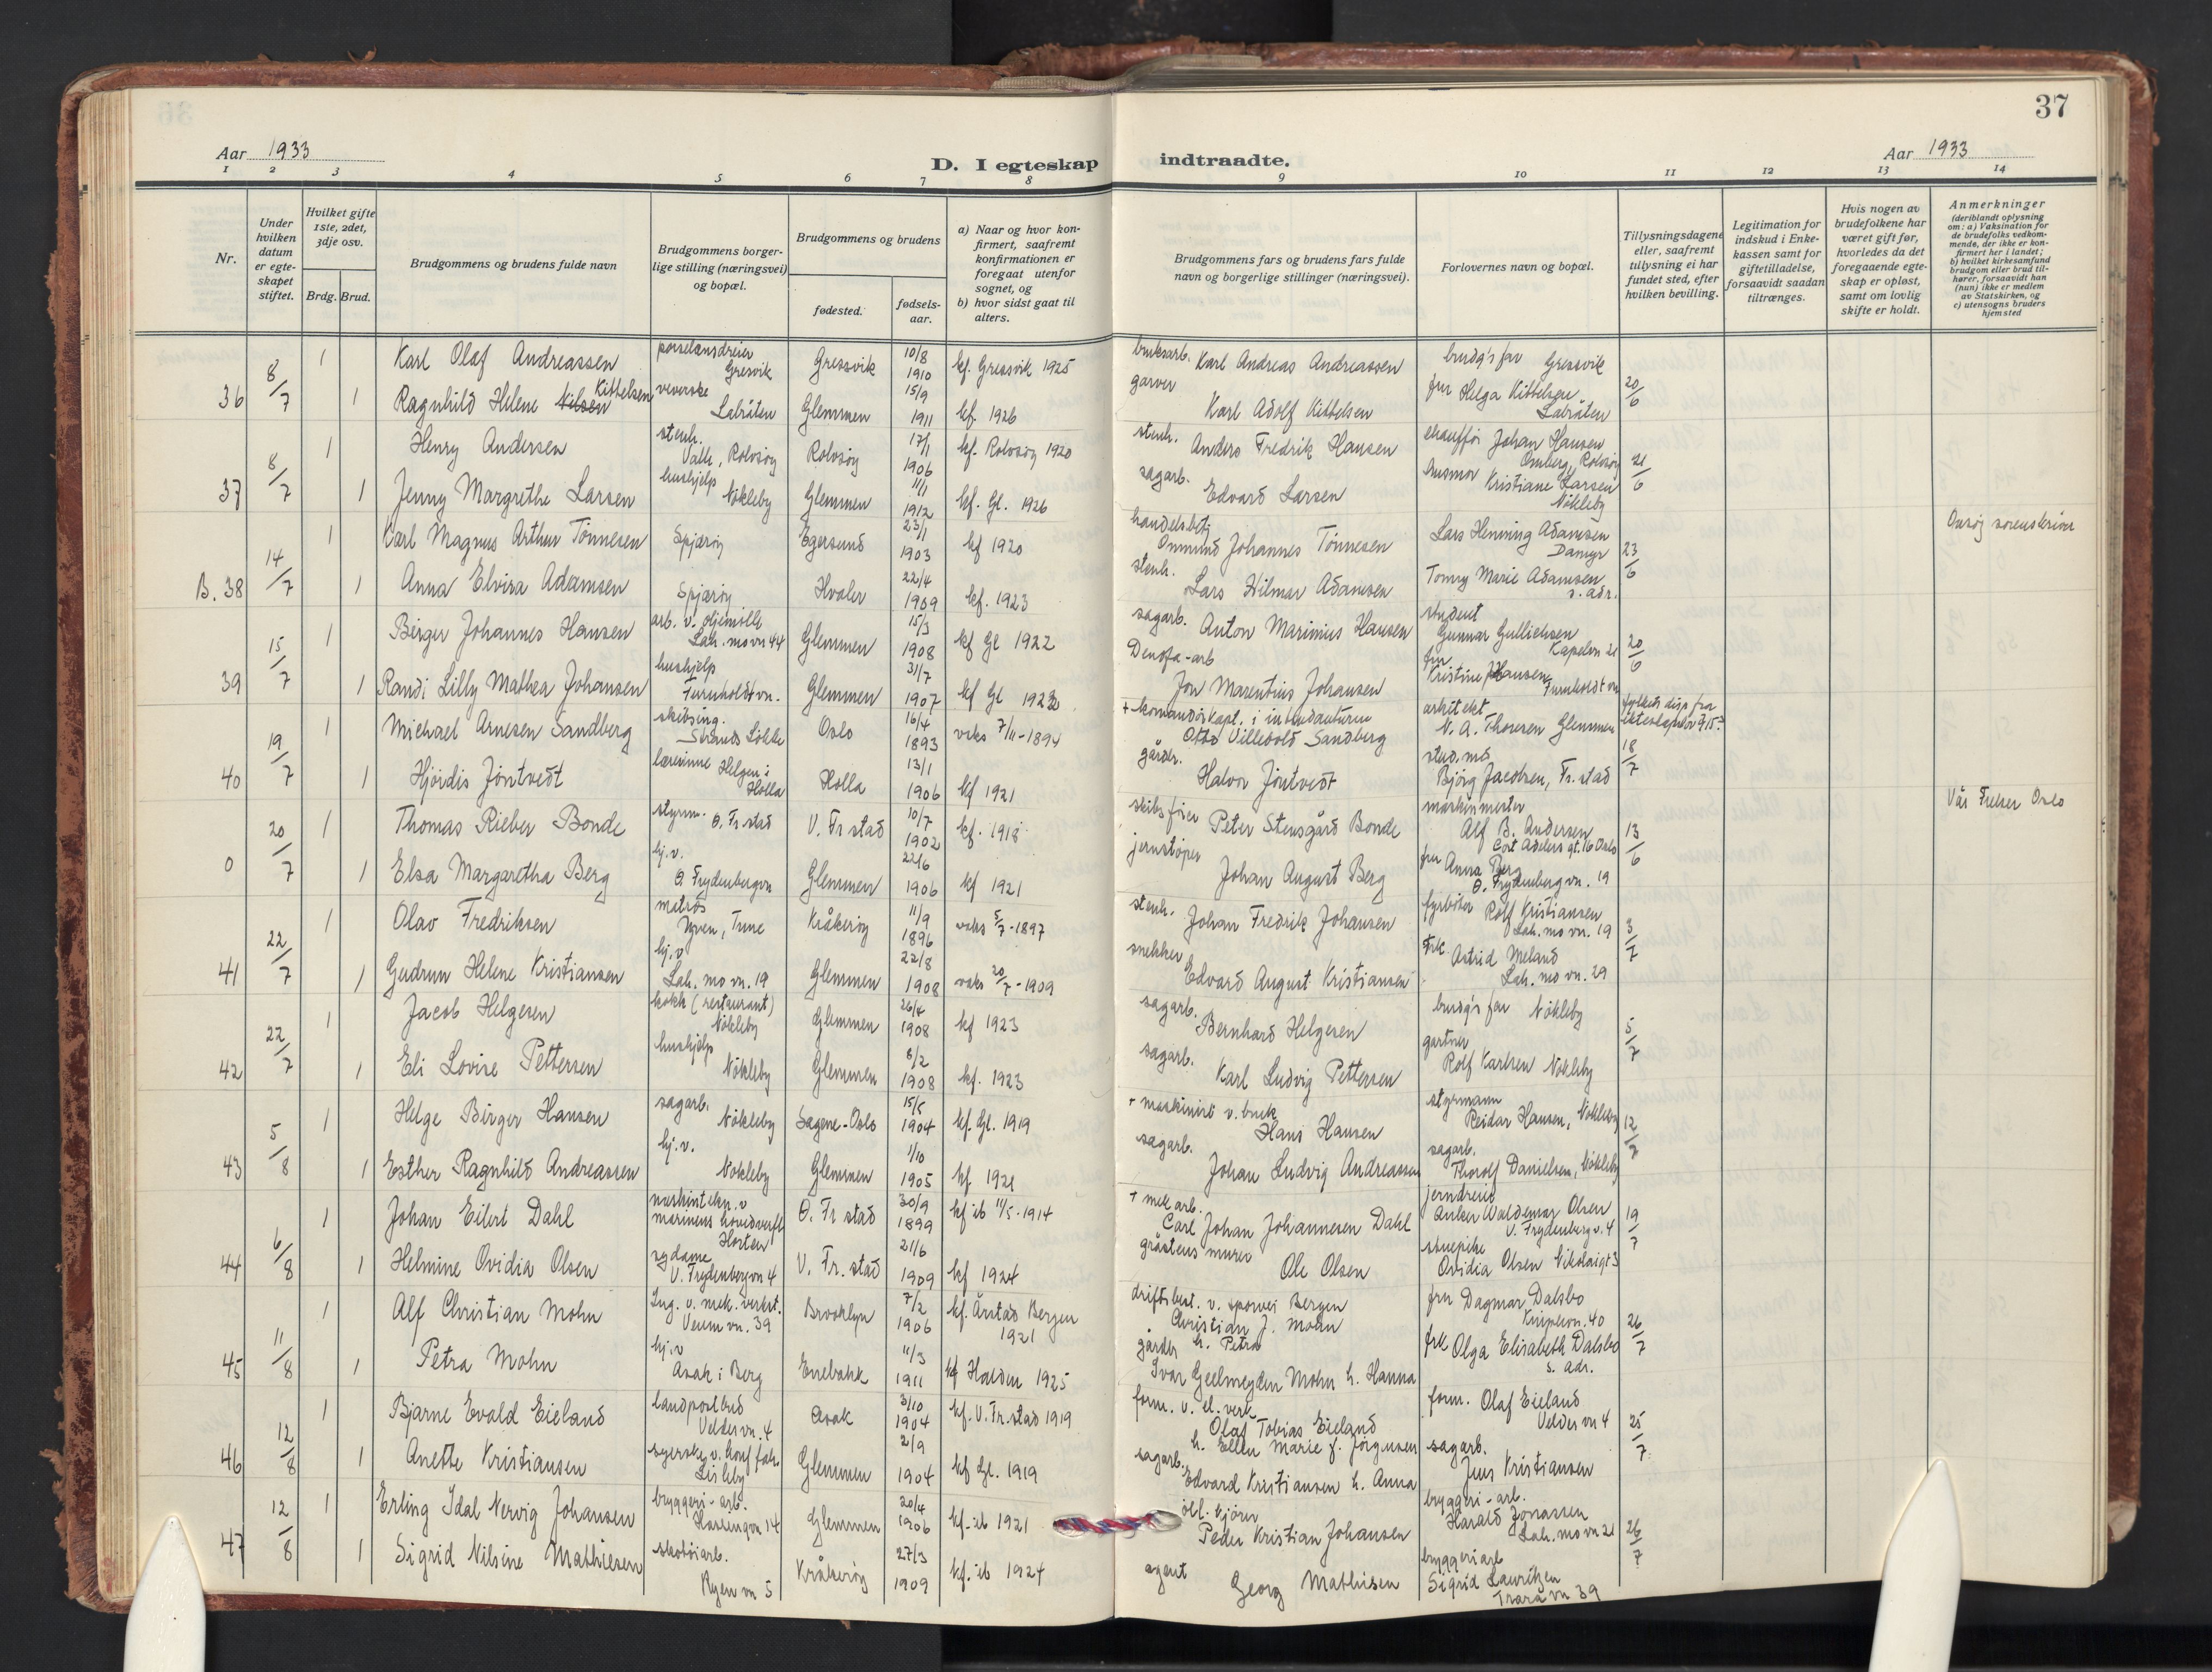 37
Aar 1933
D. I egteskap indtraadte.
Aar 1933
1 2 3 4 5 6 7 8 9 10 11 12 13 14
Nr.
Under hvilken datum er egteskapet stiftet.
Hvilket gifte 1ste, 2det, 3dje osv.
Brdg. Brud.
Brudgommens og brudens fulde navn
Brudgommens borgerlige stilling (næringsvei) og bopæl.
Brudgommens og brudens
fødested.
fødselsaar.
a) Naar og hvor konfirmert, saafremt konfirmationen er foregaat utenfor sognet, og
b) hvor sidst gaat til alters.
Brudgommens fars og brudens fars fulde navn og borgerlige stillinger (næringsvei).
Forlovernes navn og bopæl.
Tillysningsdagene eller, saafremt tillysning ei har fundet sted, efter hvilken bevilling.
Legitimation for indskud i Enkekassen samt for giftetilladelse, forsaavidt saadan tiltrænges.
Hvis nogen av brudefolkene har været gift før, hvorledes da det foregaaende egteskap er opløst, samt om lovlig skifte er holdt.
Anmerkninger
(deriblandt oplysning om: a) Vaksination for de brudefolks vedkommende, der ikke er konfirmert her i landet;
b) hvilket kirkesamfund brudgom eller brud tilhører, forsaavidt han (hun) ikke er medlem av Statskirken, og
c) utensogns bruders hjemsted
36 8/7 1 Karl Olaf Andreassen porselensdreier Gresvik Gressvik 10/8 1910 kf. Gressvik 1925 bruksarb. Karl Andreas Andreassen brudg's far Gressvik 20/6
1 Ragnhild Helene Nilsen Kittelsen veverske Labråten Glemmen 15/9 1911 kf. 1926 garver Karl Adolf Kittelsen fru Helga Kittelsen Labråten
37 8/7 1 Henry Andersen stenh. Valle, Rolvsøy Rolvsøy 17/1 1906 kf. Rolvsøy 1920 stenh. Anders Fredrik Hansen chauffør Johan Hansen Omberg, Rolvsøy 21/6
1 Jenny Margrethe Larsen hushjelp Nøkleby Glemmen 11/1 1912 kf. Gl. 1926 sagarb. Edvard Larsen husmor Kristiane Larsen Nøkleby
B. 38 14/7 1 Karl Magnus Arthur Tønnesen Spjærøy Egersund 23/1 1903 kf 1920 handelsbetj. Onmund Johannes Tønnesen Lars Henning Adamsen Damyr 23/6 Onsøy sorenskriver
1 Anna Elvira Adamsen Spjærøy Hvaler 22/4 1909 kf. 1923 stenh. Lars Hilmar Adamsen Tonny Marie Adamsen s. adr.
39 15/7 1 Birger Johannes Hansen arb. v. oljemølle Lah. mo vn 44 Glemmen 15/3 1908 kf Gl 1922 sagarb. Anton Marinius Hansen student Gunnar Gulliksen Kapelvn 21 20/6
1 Randi Lilly Mathea Johansen hushjelp Furuholdtvn. Glemmen 31/7 1907 kf Gl 1922 Denofa-arb Jon Marentius Johansen fru Kristine Hansen Furuholdtvn
40 19/7 1 Michael Arnesen Sandberg skibsing. Strands Løkke Oslo 16/4 1893 vaks 7/11-1894 + komandørkapt. i intendanturen Otto Villebold Sandberg arkitekt N. A. Thoresen Glemmen fylkets disp fra
1 Hjørdis Jøntvedt lærerinne Helgen i Holla Holla 13/1 1906 kf 1921 gårdbr. Halvor Jøntvedt stud. med. Bjørg Jacobsen, Fr.stad 18/7
0 20/7 1 Thomas Rieber Bonde styrm. Ø. Fr stad V. Fr stad 10/7 1902 kf. 1918 skibsfører Peter Stensgård Bonde maskinmester Alf B. Andersen Cort Adelers gt. 16 Oslo 13/6 Vår Frelser Oslo
1 Elsa Margaretha Berg hj.v. Ø. Frydenbergvn Glemmen 22/6 1906 kf 1921 jernstøper Johan August Berg fru Anna Berg Ø. Frydenbergvn. 19
41 22/7 1 Olav Fredriksen matros Yven, Tune Kråkerøy 11/9 1896 vaks 5/7-1897 stenh. Johan Fredrik Johansen fyrbøter Rolf Kristiansen Lah. mo vn. 19 3/7
1 Gudrun Helene Kristiansen hj.v Lah. mo vn. 19 Glemmen 22/8 1908 vaks 20/7-1909 snekker Edvard August Kristiansen Frk Astrid Meland Lah. mo vn. 29
42 22/7 1 Jacob Helgesen kokk (restaurant) Nøkleby Glemmen 26/4 1908 kf 1923 sagarb. Bernhard Helgesen brudg's far Nøkleby 5/7
1 Eli Lovise Pettersen hushjelp Nøkleby Glemmen 8/2 1908 kf. 1923 sagarb. Karl Ludvig Pettersen gartner Rolf Karlsen Nøkleby
43 5/8 1 Helge Birger Hansen sagarb. Nøkleby Sagene-Oslo 15/5 1904 kf. Gl. 1919 + maskinist v. bruk Hans Hansen styrmann Reidar Hansen, Nøkleby
1 Esther Ragnhild Andreassen hj.v. Nøkleby Glemmen 1/10 1905 kf. 1921 sagarb. Johan Ludvig Andreassen sagarb. Thorolf Danielsen, Nøkleby
44 6/8 1 Johan Eilert Dahl maskintekn. v marinens hovedverft Horten Ø. Fr stad 30/9 1899 kf ib 11/5-1914 + mek arb. Carl Johan Johannesen Dahl jerndreier Anker Waldemar Olsen V. Frydenbergv. 4 19/7
1 Helmine Ovidia Olsen sydame V. Frydenbergvn 4 V. Fr. stad 21/6 1909 kf 1924 gråstens murer Ole Olsen stuepike Ovidia Olsen Nikolaigt 3
45 11/8 1 Alf Christian Mohn Ing. v. mek. verkst. Veum vn. 39 Brooklyn 7/2 1906 kf. Årstad Bergen 1921 driftsbest. v. sporvei Bergen Christian J. Mohn h. Petra fru Dagmar Dalsbo 26/7
1 Petra Mohn hj.v Asak i Berg Enebakk 11/3 1911 kf Halden 1925 gårdbr Ivar Geelmeyden Mohn h. Hanna frk Olga Elisabeth Dalsbo s. adr.
46 12/8 1 Bjarne Evald Eieland landpostbud Veldervn. 4 Asak 3/10 1904 kf. V. Fr.stad 1919 form. v. el. verk Olaf Tobias Eieland h. Ellen Marie f. Jørgensen form. Olaf Eieland Velder vn 4 25/7
1 Anette Kristiansen syerske v. konf fabr. Lisleby Glemmen 2/9 1904 kf Gl. 1919 sagarb. Edvard Kristiansen h. Anna sagarb. Jens Kristiansen
47 12/8 1 Erling Idal Nervig Johansen bryggeri-arb. Glemmen 20/4 1906 kf. ib 1921 øll. kjører Peder Kristian Johansen bryggeri-arb. Harald Jonassen Lah. mo vn 21 26/7
1 Sigrid Nilsine Mathiesen skotøiarb. Ryen vn 5 Kråkerøy 27/3 1909 kf. ib 1924 agent Georg Mathisen bryggeriarb Sigrid Lauritzen Trara vn 39